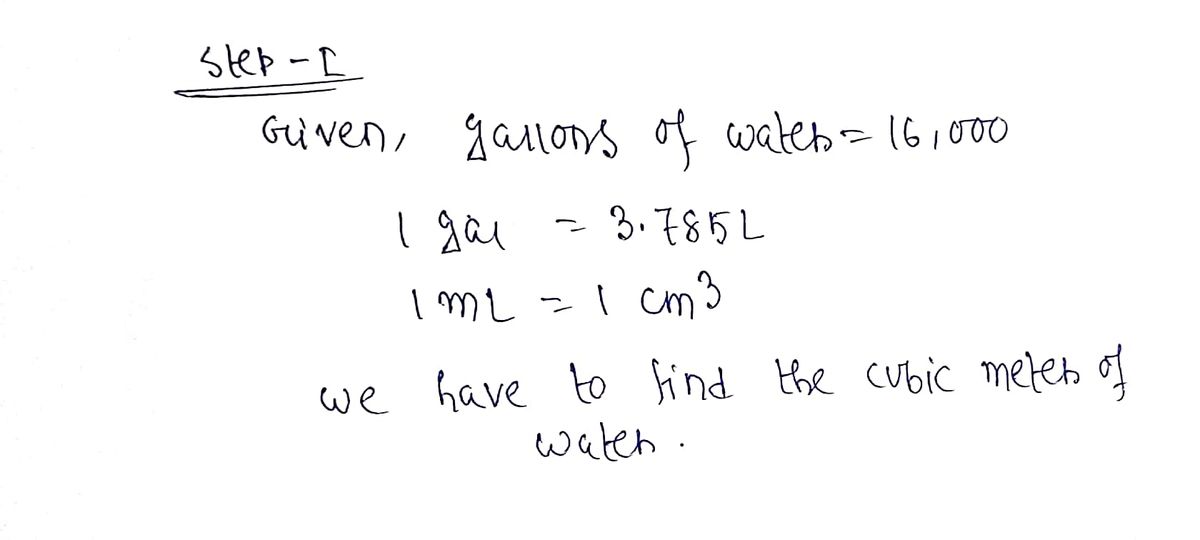 Step-I
Given, gallons of water = 16,000
1 gal = 3.785L
1 mL = 1 cm3
we have to find the cubic meter of
water.